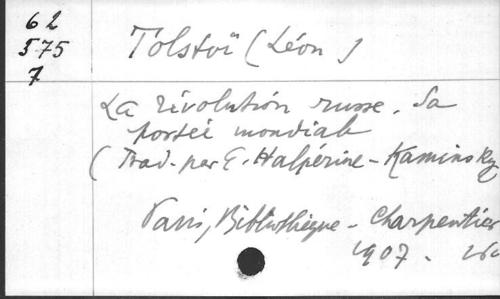 62
575
7
Tolstoï (Léon)
La révolution russe. Sa
portée mondiale
(Trad. par E. Halpérine-Kaminsky
Paris, Bibliothèque-Charpentier
1907.